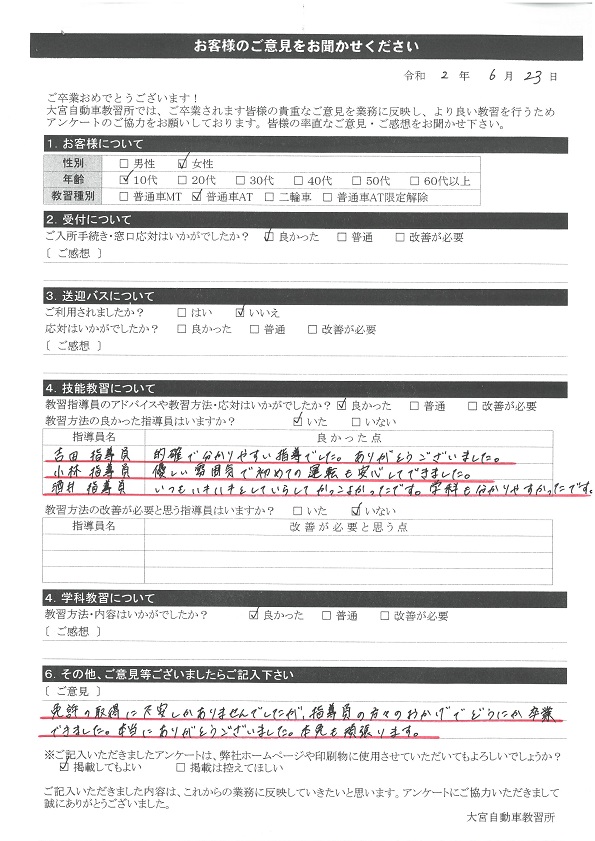 お客様のご意見をお聞かせください
令和 2 年 6 月 23 日
ご卒業おめでとうございます！
大宮自動車教習所では、ご卒業されます皆様の貴重なご意見を業務に反映し、より良い教習を行うため
アンケートのご協力をお願いしております。皆様の率直なご意見・ご感想をお聞かせ下さい。
1. お客様について
性別 □ 男性 ☑ 女性
年齢 ☑ 10代 □ 20代 □ 30代 □ 40代 □ 50代 □ 60代以上
教習種別 □ 普通車MT ☑ 普通車AT □ 二輪車 □ 普通車AT限定解除
2. 受付について
ご入所手続き・窓口応対はいかがでしたか？ ☑ 良かった □ 普通 □ 改善が必要
〔 ご感想 〕
3. 送迎バスについて
ご利用されましたか？ □ はい ☑ いいえ
応対はいかがでしたか？ □ 良かった □ 普通 □ 改善が必要
〔 ご感想 〕
4. 技能教習について
教習指導員のアドバイスや教習方法・応対はいかがでしたか？ ☑ 良かった □ 普通 □ 改善が必要
教習方法の良かった指導員はいますか？ ☑ いた □ いない
指導員名 良かった点
吉田 指導員 的確で分かりやすい指導でした。ありがとうございました。
小林 指導員 優しい雰囲気で初めての運転も安心してできました。
酒井 指導員 いつもいきいきとしていらしてかっこよかったです。学科も分かりやすかったです。
教習方法の改善が必要と思う指導員はいますか？ □ いた ☑ いない
指導員名 改善が必要と思う点
4. 学科教習について
教習方法・内容はいかがでしたか？ ☑ 良かった □ 普通 □ 改善が必要
〔 ご感想 〕
6. その他、ご意見等ございましたらご記入下さい
〔 ご意見 〕
免許の取得に不安しかありませんでしたが、指導員の方々のおかげでどうにか卒業
できました。本当にありがとうございました。本免も頑張ります。
※ご記入いただきましたアンケートは、弊社ホームページや印刷物に使用させていただいてもよろしいでしょうか？
☑ 掲載してもよい □ 掲載は控えてほしい
ご記入いただきました内容は、これからの業務に反映していきたいと思います。アンケートにご協力いただきまして
誠にありがとうございました。
大宮自動車教習所